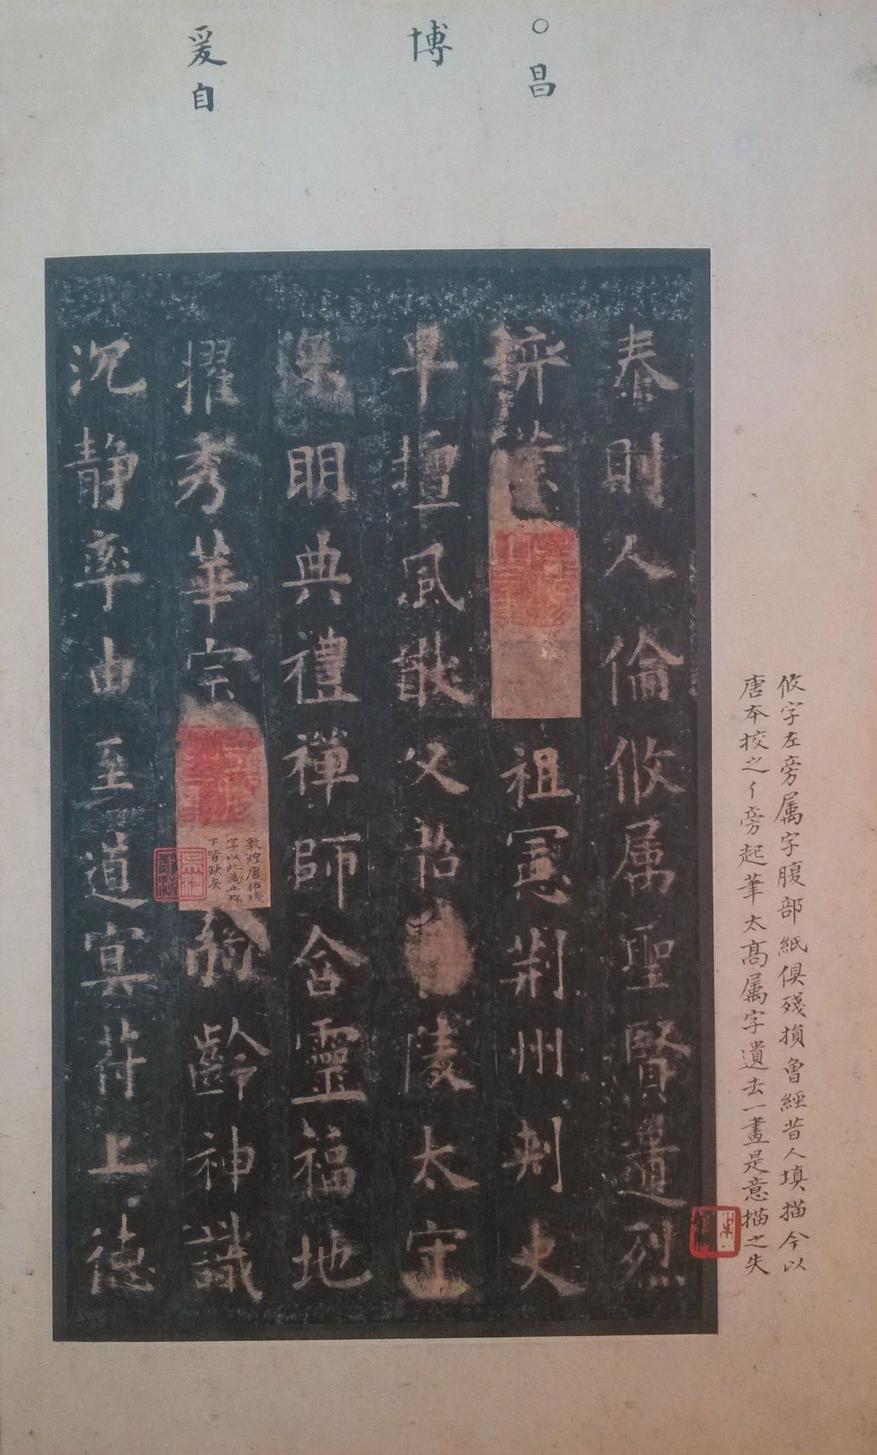 ○昌
博
爰自
攸字左旁属字腹部紙俱殘損曾經昔人填描今以
唐本挍之亻旁起筆太高属字遺去一畫是意描之失
泰則人倫攸属聖賢遺烈
葉
祖憲荊州刺史
早擅風猷父韶陵太守
深明典禮禪師含靈福地
擢秀華宗
敦煌唐拓殘
字以此為止以
下皆缺矣
弱齡神識
沉静率由至道冥符上德